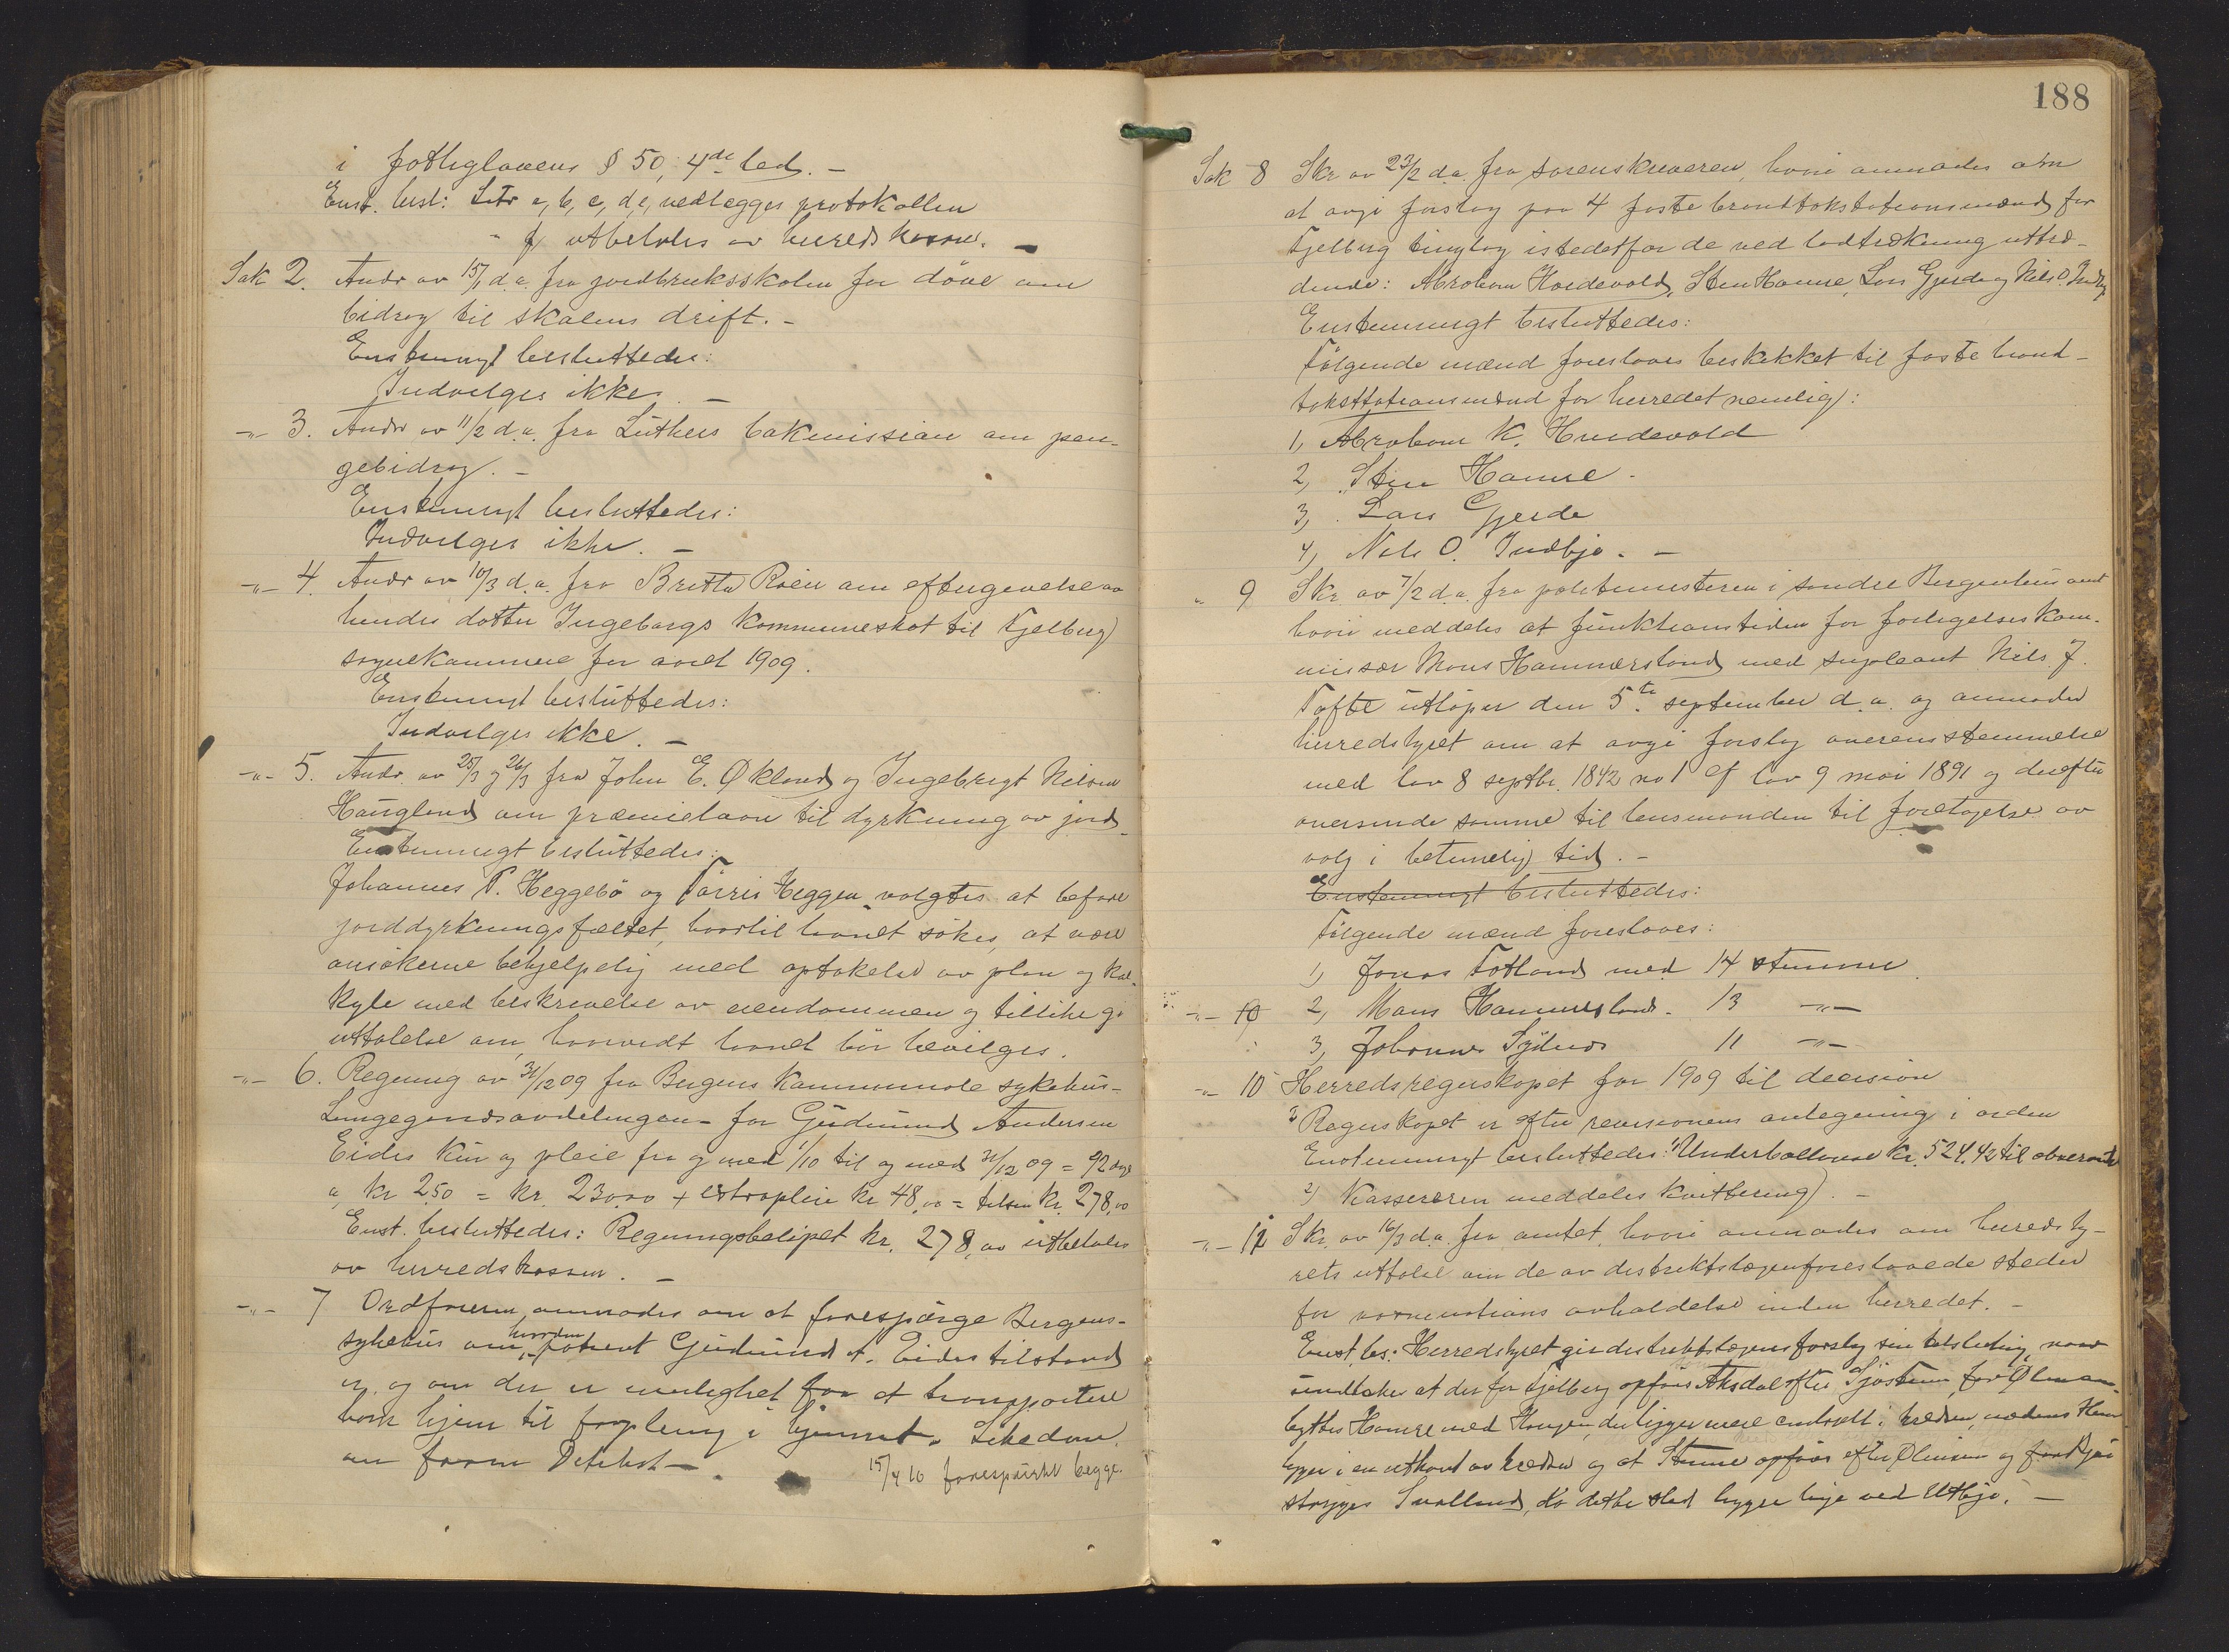 i fattiglovens § 50, 4de led. -
Enst. besl: Litr a, b, c, d, e, vedlægges protokollen
" f, utbetales av herredskassen. -
Sak 2. Andr av 15/1 d.a. fra jordbruksskolen for døve om
bidrag til skolens drift. -
Enstemmigt besluttedes:
Indvilges ikke. -
-"- 3. Andr av 11/2 d.a. fra Luthers bokmission om pen-
gebidrag. -
Enstemmigt besluttedes:
Indvilges ikke. -
-"- 4. Andr av 10/3 d.a. fra Britta Røen om eftergivelse av
hendes datter Ingeborgs kommuneskat til Fjelberg
sognekommune for aaret 1909.
Enstemmigt besluttedes:
Indvilges ikke. -
-"- 5. Andr. av 25/3 og 26/3 fra John E. Økland og Ingebrigt Nilsen
Haugland om præmielaan til dyrkning av jord.
Enstemmigt besluttedes:
Johannes P. Heggebø og Tørris Heggen valgtes at befare
jorddyrkningsfeltet, hvortil laanet søkes, at være
ansøkerne behjelpelig med optakelse av plan og kal-
kyle med beskrivelse av eiendommen og tillike gi
uttalelse om, hvorvidt laanet bør bevilges.
-"- 6. Regning av 31/12 09 fra Bergens kommunale sykehus-
Lungegaardsavdelingen- for Gudmund Andersen
Eides kur og pleie fra og med 1/10 til og med 31/12 09 = 92 dage
a, kr 2.50 = kr. 230.00 + extrapleie kr 48,00 = tilsam kr. 278,00
Enst. besluttedes: Regningsbeløpet kr. 278,00 utbetales
av herredskassen. -
-"- 7 Ordføreren anmodes om at forespørge Bergens-
sykehus om, hvordan patient Gudmund A. Eides tilstand
er, og om der er mulighet for at transportere
ham hjem til forpleining i hjemmet. Likedan
om
15/4 10 forespurt begge.
188
Sak 8 Skr av 23/2 d.a. fra sorenskriveren, hvori anmodes om
at avgi forslag paa 4 faste brandtakstationsmænd for
Fjelberg tinglag istedetfor de ved lodtrækning uttræ-
dende: Abraham Hardevold, Sten Hamre, Lars Gjerde og Nils O. Indbjo
Enstemmigt besluttedes:
Følgende mænd foreslaaes beskikket til faste brand-
takstationsmænd for herredet nemlig:
1, Abraham K. Hardevold
2, Sten Hamre -
3, Lars Gjerde
4, Nils O. Indbjo. -
" 9 Skr av 7/2 d.a. fra politimesteren i søndre Bergenhus amt
hvori meddeles at funktionstiden for forligelseskom-
missær Mons Hammersland med supleant Nils J.
Tofte utløper den 5te september d.a. og anmoder
herredstyret om at avgi forslag overensstemmelse
med lov 8 septbr. 1842 no 1 cf lov 9 mai 1891 og derefter
oversende samme til lensmanden til foretagelse av
valg i betimelig tid. -
Enstemmigt besluttedes:
Følgende mænd foreslaaes:
1, Jonas Totland med 14 stemmer.
-"- 10 2, Mons Hammersland - 13 -"-
3, Johannes 11 -"-
-"- 10 Herredsregnskapet for 1909 til decision
Regnskapet er efter revisionens antegning i orden
Enstemmigt besluttedes: 1) Underballance kr. 524,42 til
2) Kassereren meddeles kvittering. -
-"- 12 Skr. av 16/3 d.a. fra amtet, hvori anmodes om heredsty-
rets uttalelse om de av distriktslægen foreslaaede steder
for vaccinations avholdelse inden herredet. -
Enst. bes: Herredstyret gir distriktslægens forslag sin tilslutning, naar
undtakes at der for Fjelberg opføres Aksdal efter for Ølen om-
byttes Hamre med Haugen, der ligger mere centralt i kredsen, medens Hamre
ligger i en utkant av kredsen og at opføres efter Ølen og
strykes Svolland, da dette sted ligger like ved Utbjo. -